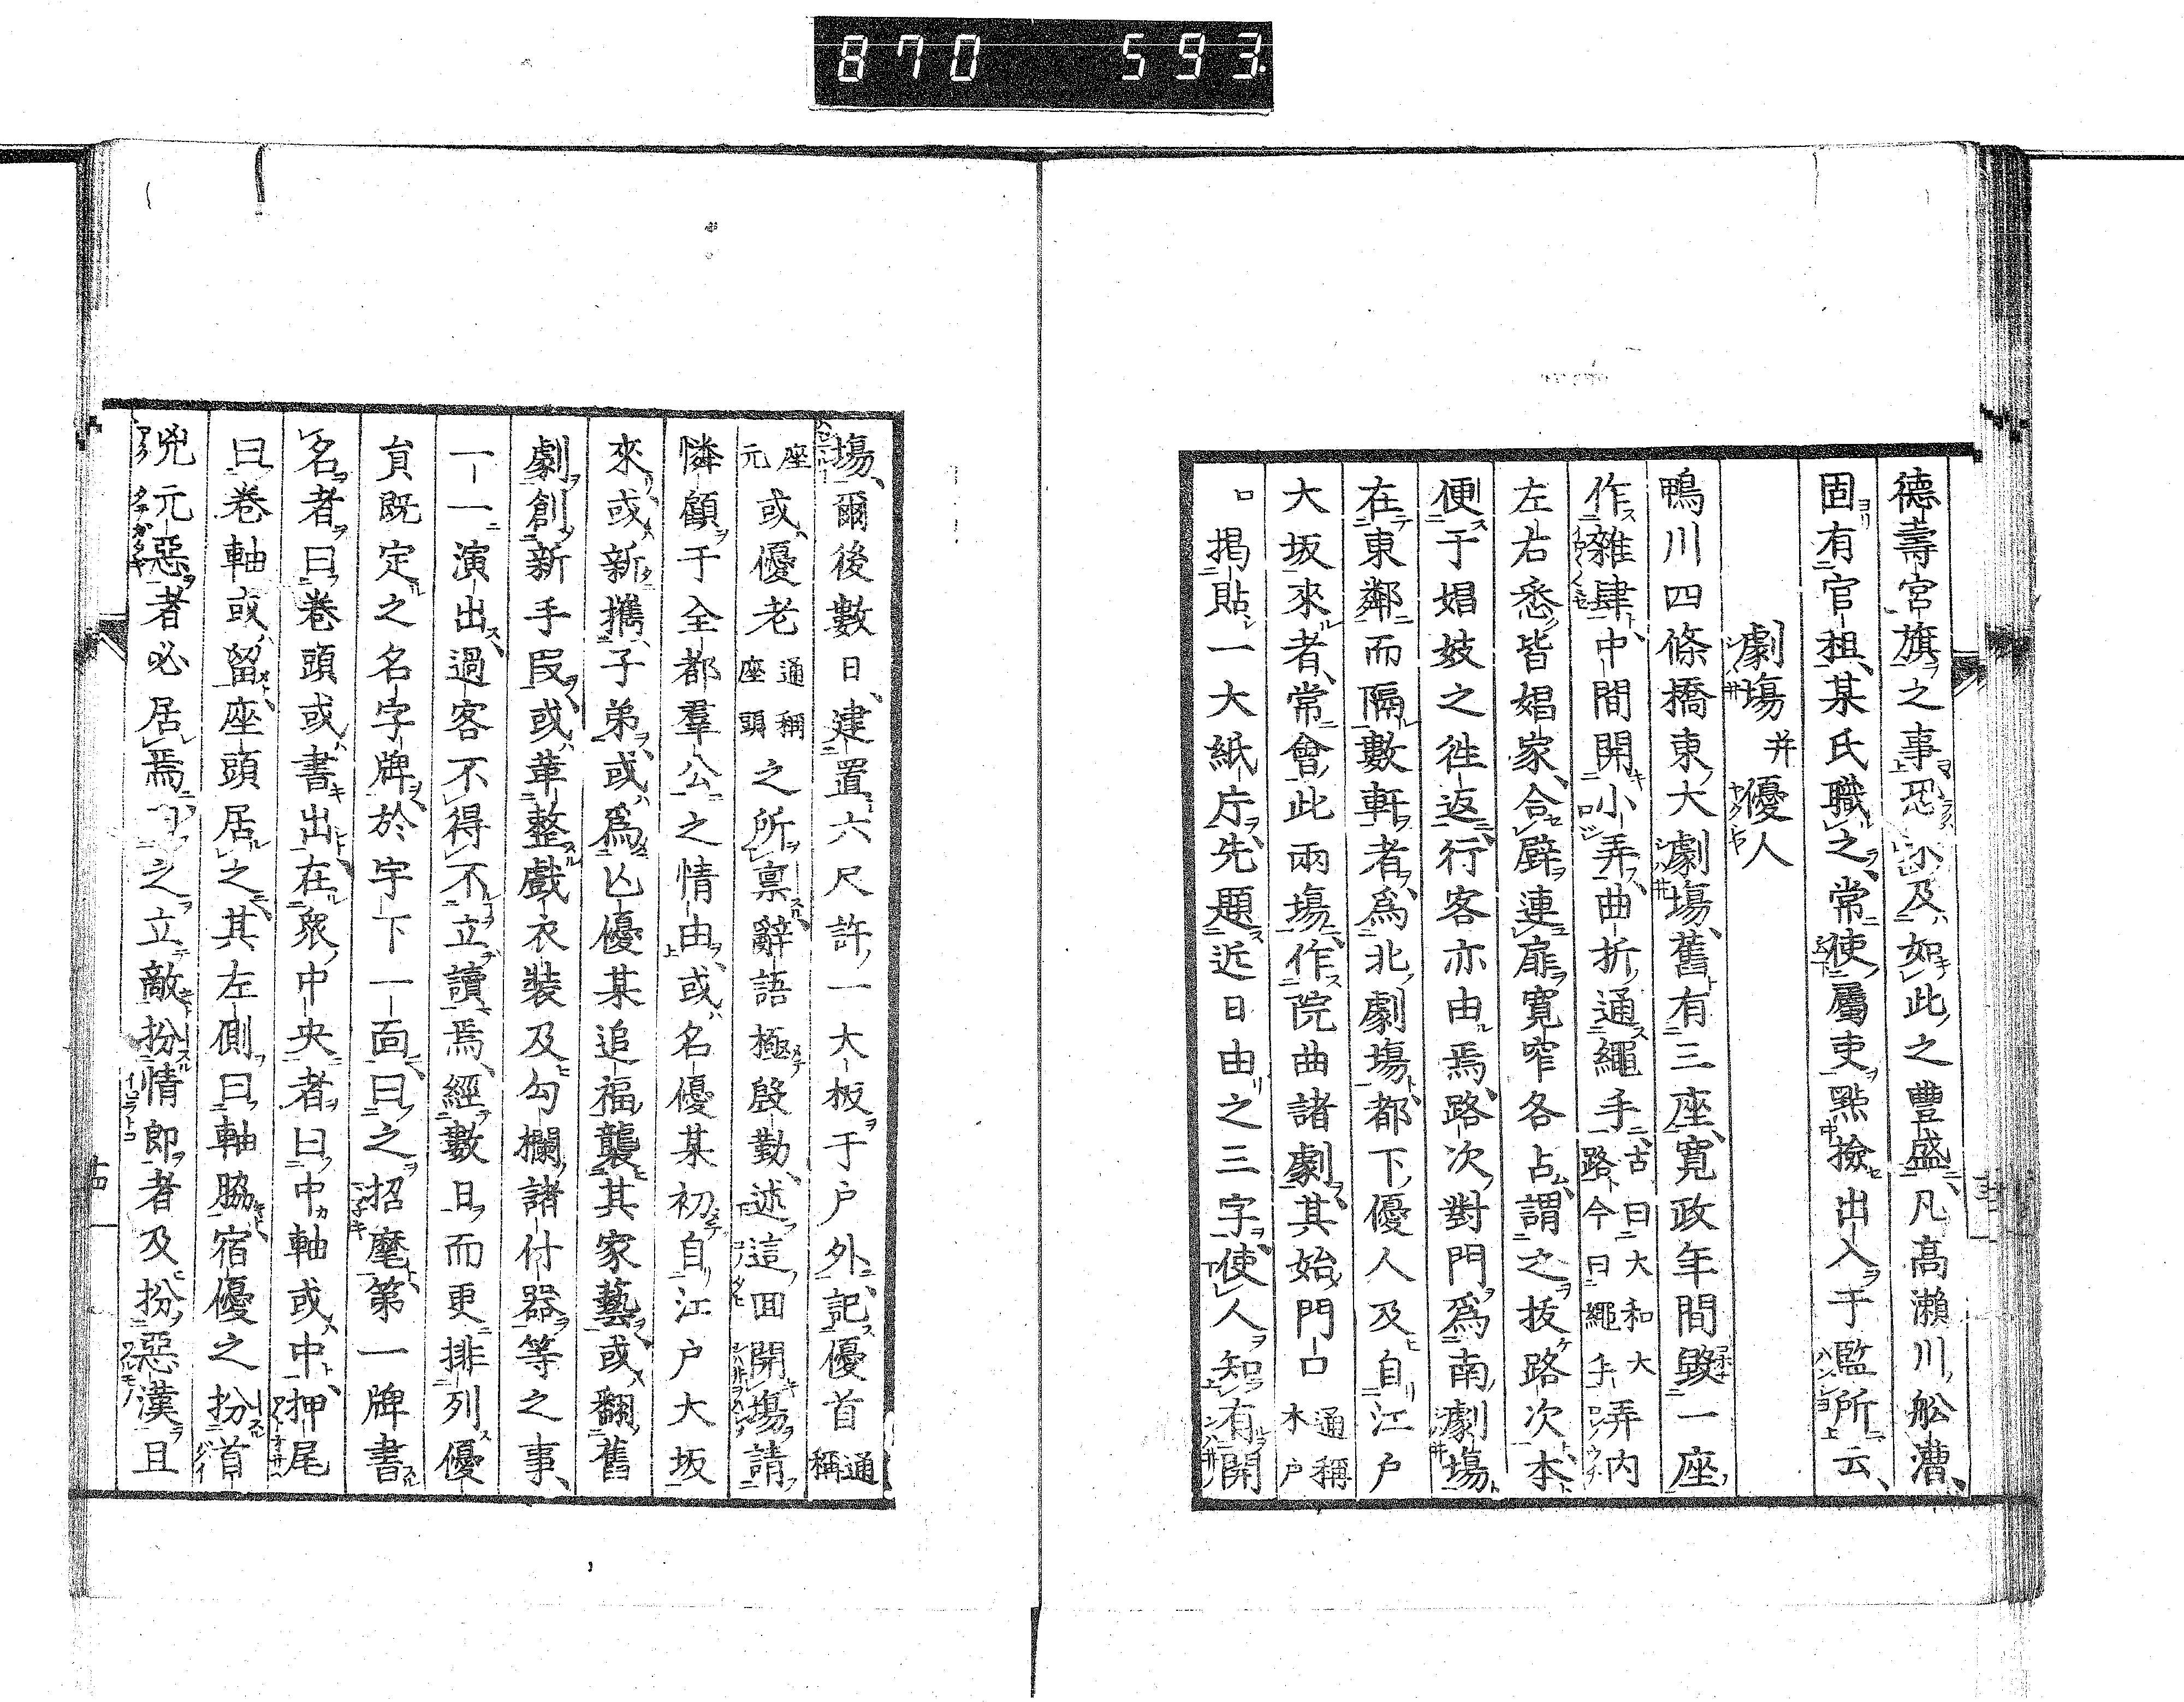 870 593.
德壽宮旗之事恐不及如此之豐盛凡高瀬川舩漕
固有官租某氏職之常使屬吏㸃撿出入于監所云
劇塲并優人
鴨川四條橋東大劇塲舊有三座寛政年間毀一座
作雜肆中間開小弄曲折通繩手古曰大和大路今曰繩手弄内
左右悉皆娼家合壁連扉寛窄各占謂之抜路次本
便于娼妓之徃返行客亦由焉路次對門爲南劇塲
在東鄰而隔數軒者爲北劇塲都下優人及自江户
大坂來者常會此兩塲作院曲諸劇其始門口通稱木户
口揭貼一大紙庁先題近日由之三字使人知有開
塲爾後數日建置六尺許一大板于户外記優首通稱
座元或優老通稱座頭之所禀辭語極殷勤述這囬開塲請
憐顧于全都羣公之情由或名優某初自江户大坂
來或新攜子弟或爲亾優某追福襲其家藝或翻舊
劇創新手叚或革整戲衣装及勾欄諸什器等之事
一一演出過客不得不立讀焉經數日而更排列優
貟既定之名字牌於宇下一面曰之招麾第一牌書
名者曰巻頭或書出在衆中央者曰中軸或中押尾
曰巻軸或留座頭居之其左側曰軸脇宿優之扮首
兇元惡者必居焉之立敵扮情郎者及扮惡漢且